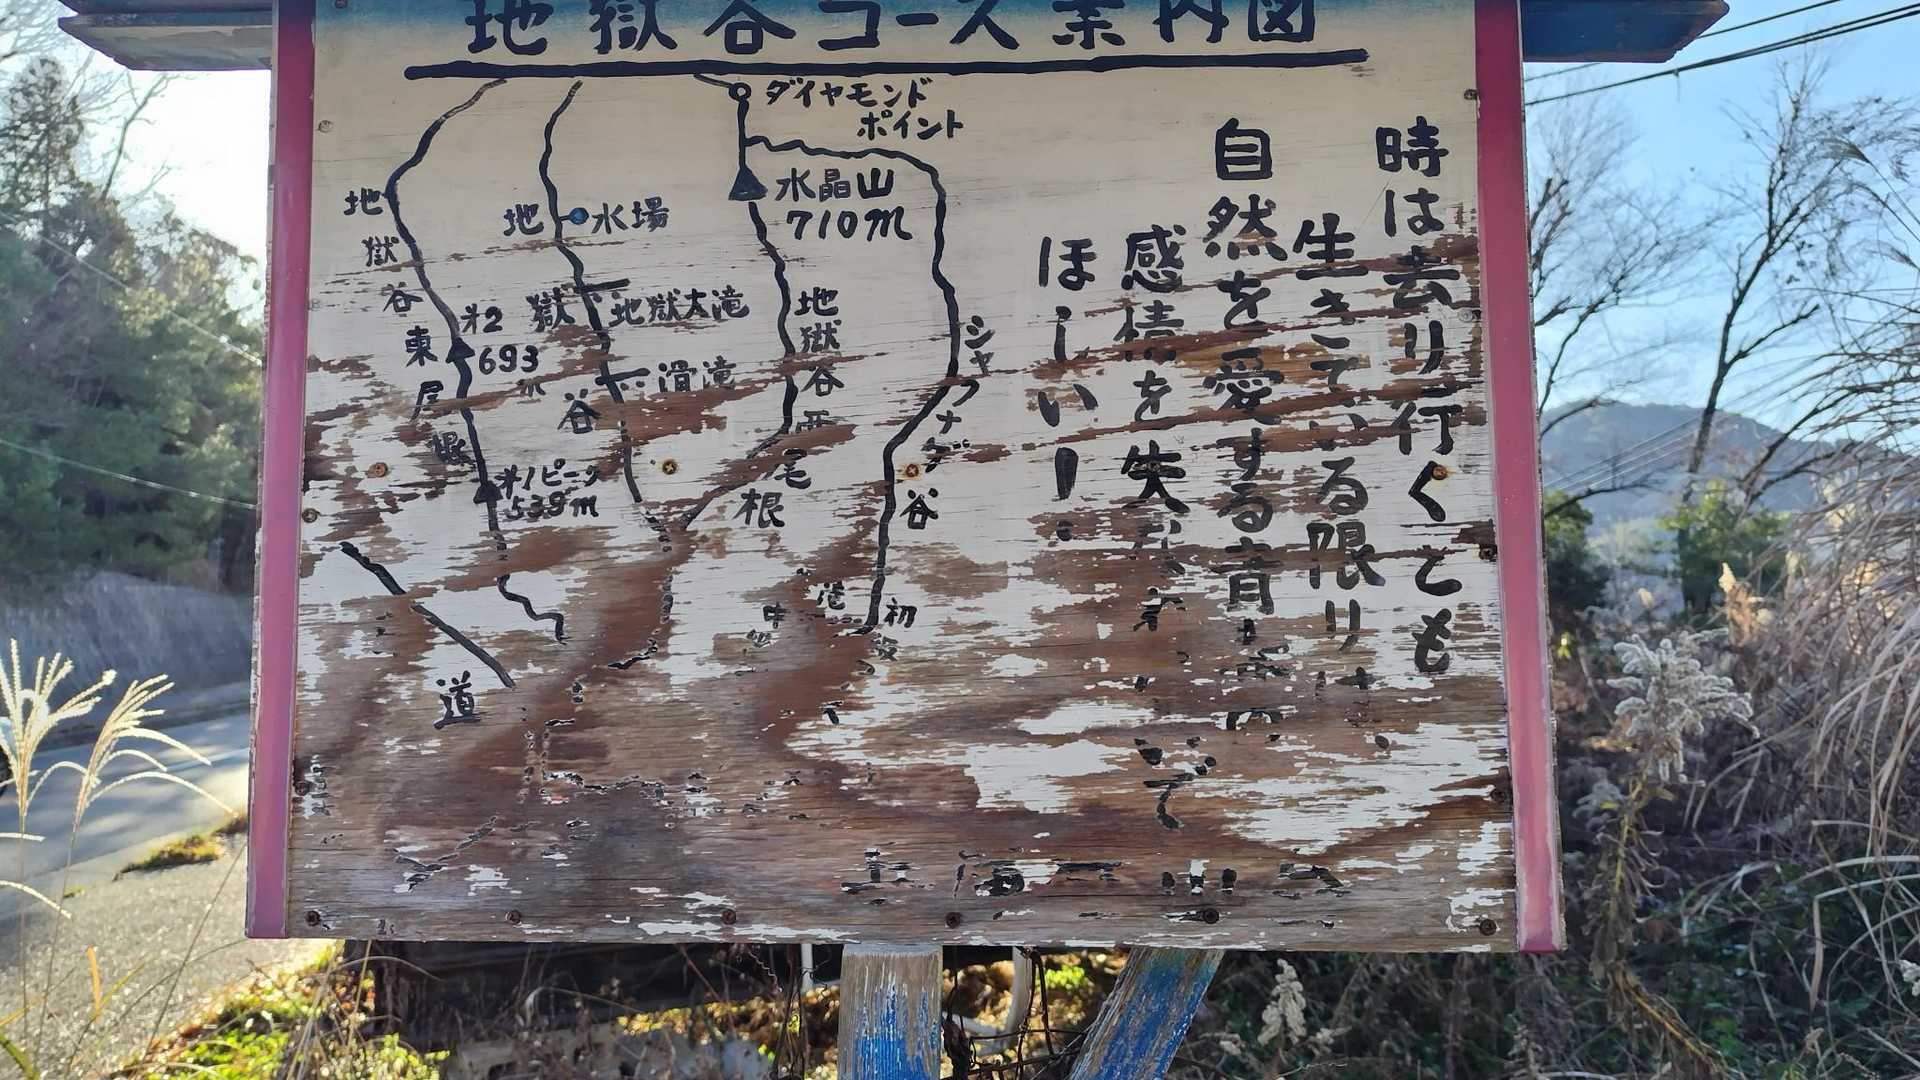 地獄谷コース案内図
ダイヤモンド
ポイント
水晶山
710m
地獄谷東尾根
地獄谷
水場
才2
693
m
地獄大滝
滑滝
地獄谷西尾根
シャクナゲ谷
才1ピーク
539m
初級
中級
道
時は去り行くとも
生きている限り
自然を愛する青春の
感情を失
ほしい!